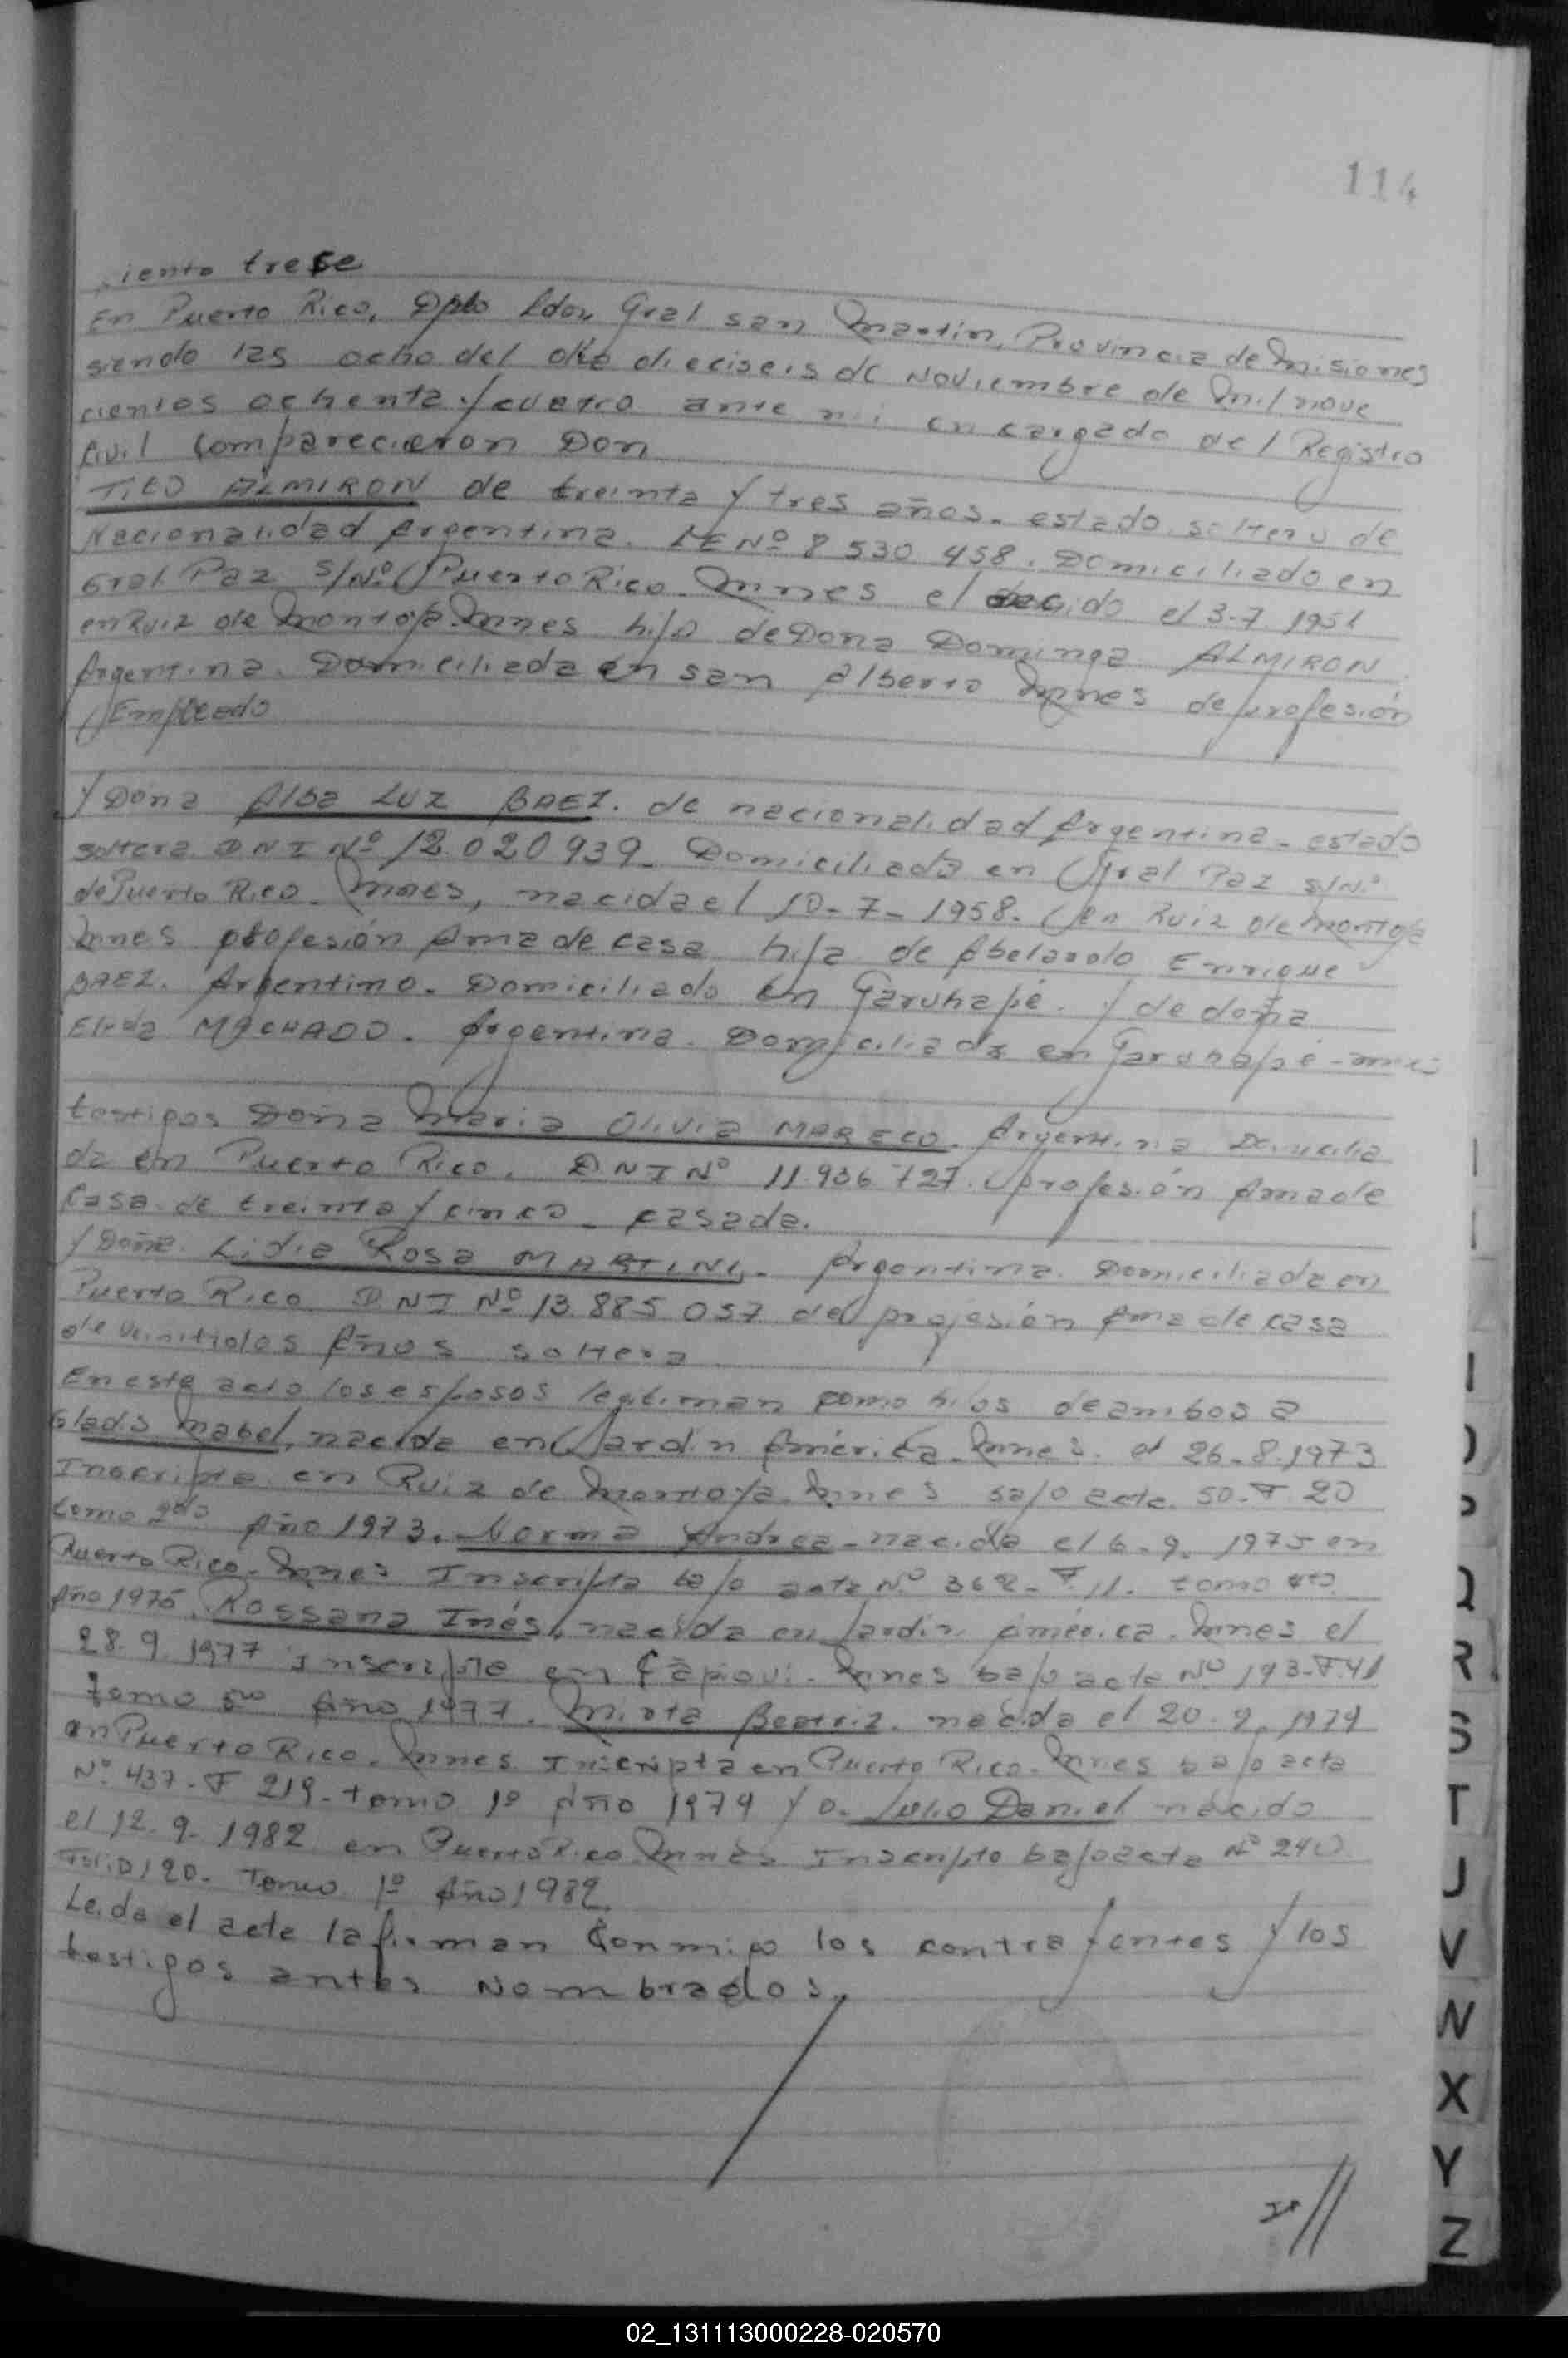 114
ciento trece
En Puerto Rico, Dpto Ldor. Gral san Martin, Provincia de Misiones
siendo las ocho del día dieciseis de Noviembre de Mil nove
cientos ochenta y cuatro ante mi encargado del Registro
Civil Comparecieron Don
TITO ALMIRON de treinta y tres años. estado soltero de
Nacionalidad Argentina. LE Nº 8 530 458. Domiciliado en
Gral Paz S/Nº Puerto Rico Mnes el nacido el 3-7 1951
en Ruiz de Montoya Mnes hijo de Dona Dominga ALMIRON
Argentina. Domiciliada en san Alberto Mnes de profesión
Empleado
y Dona Alba LUZ BAEZ. de nacionalidad Argentina - estado
soltera DNI Nº 12.020 939. Domiciliada en Gral Paz S/Nº
de Puerto Rico. Mnes, nacida el 10-7-1958. en Ruiz de Montoya
Mnes profesión Ama de casa hija de Abelardo Enrique
BAEZ. Argentino. Domiciliado en Garuhapé. y de doña
Elida MACHADO. Argentina. Domiciliada en Garuhapé -
testigos Doña Maria Olivia MARECO. Argentina Domicilia
da en Puerto Rico. DNI Nº 11.936 727. profesión Ama de
Casa. de treinta y cinco - casada.
y Doña. Lidia Rosa MARTINI. Argentina. Domiciliada en
Puerto Rico DNI Nº 13.885 057 de profesión Ama de casa
de veintidos Años soltera
En este acto los esposos legitiman como hijos de ambos a
Gladis Mabel, nacida en Jardin América. Mnes. el 26-8.1973
Inscripta en Ruiz de Montoya. Mnes bajo acta. 50-F 20
tomo 2do Año 1973. Norma Andrea - nacida el 6-9. 1975 en
Puerto Rico. Mnes Inscripta bajo acta Nº 362-F.11. tomo 4to
Año 1975. Rossana Inés, nacida en Jardin América. Mnes el
28.9.1977 Inscripta en Capiovi. Mnes bajo acta Nº 193-F.41
Tomo Año 1977. Mirta Beatriz. nacida el 20.9.1979
en Puerto Rico. Mnes Inscripta en Puerto Rico. Mnes bajo acta
Nº 437-F 219. tomo 1º Año 1979 y a. Julio Daniel nacido
el 12.9.1982 en Puerto Rico Mnes Inscripto bajo acta Nº 240
Folio 120. Tomo 1º Año 1982.
Leida el acta la firman Conmigo los contrayentes y los
testigos antes Nombrados.
I
O
P
Q
R
S
T
J
V
W
X
Y
Z
02_131113000228-020570